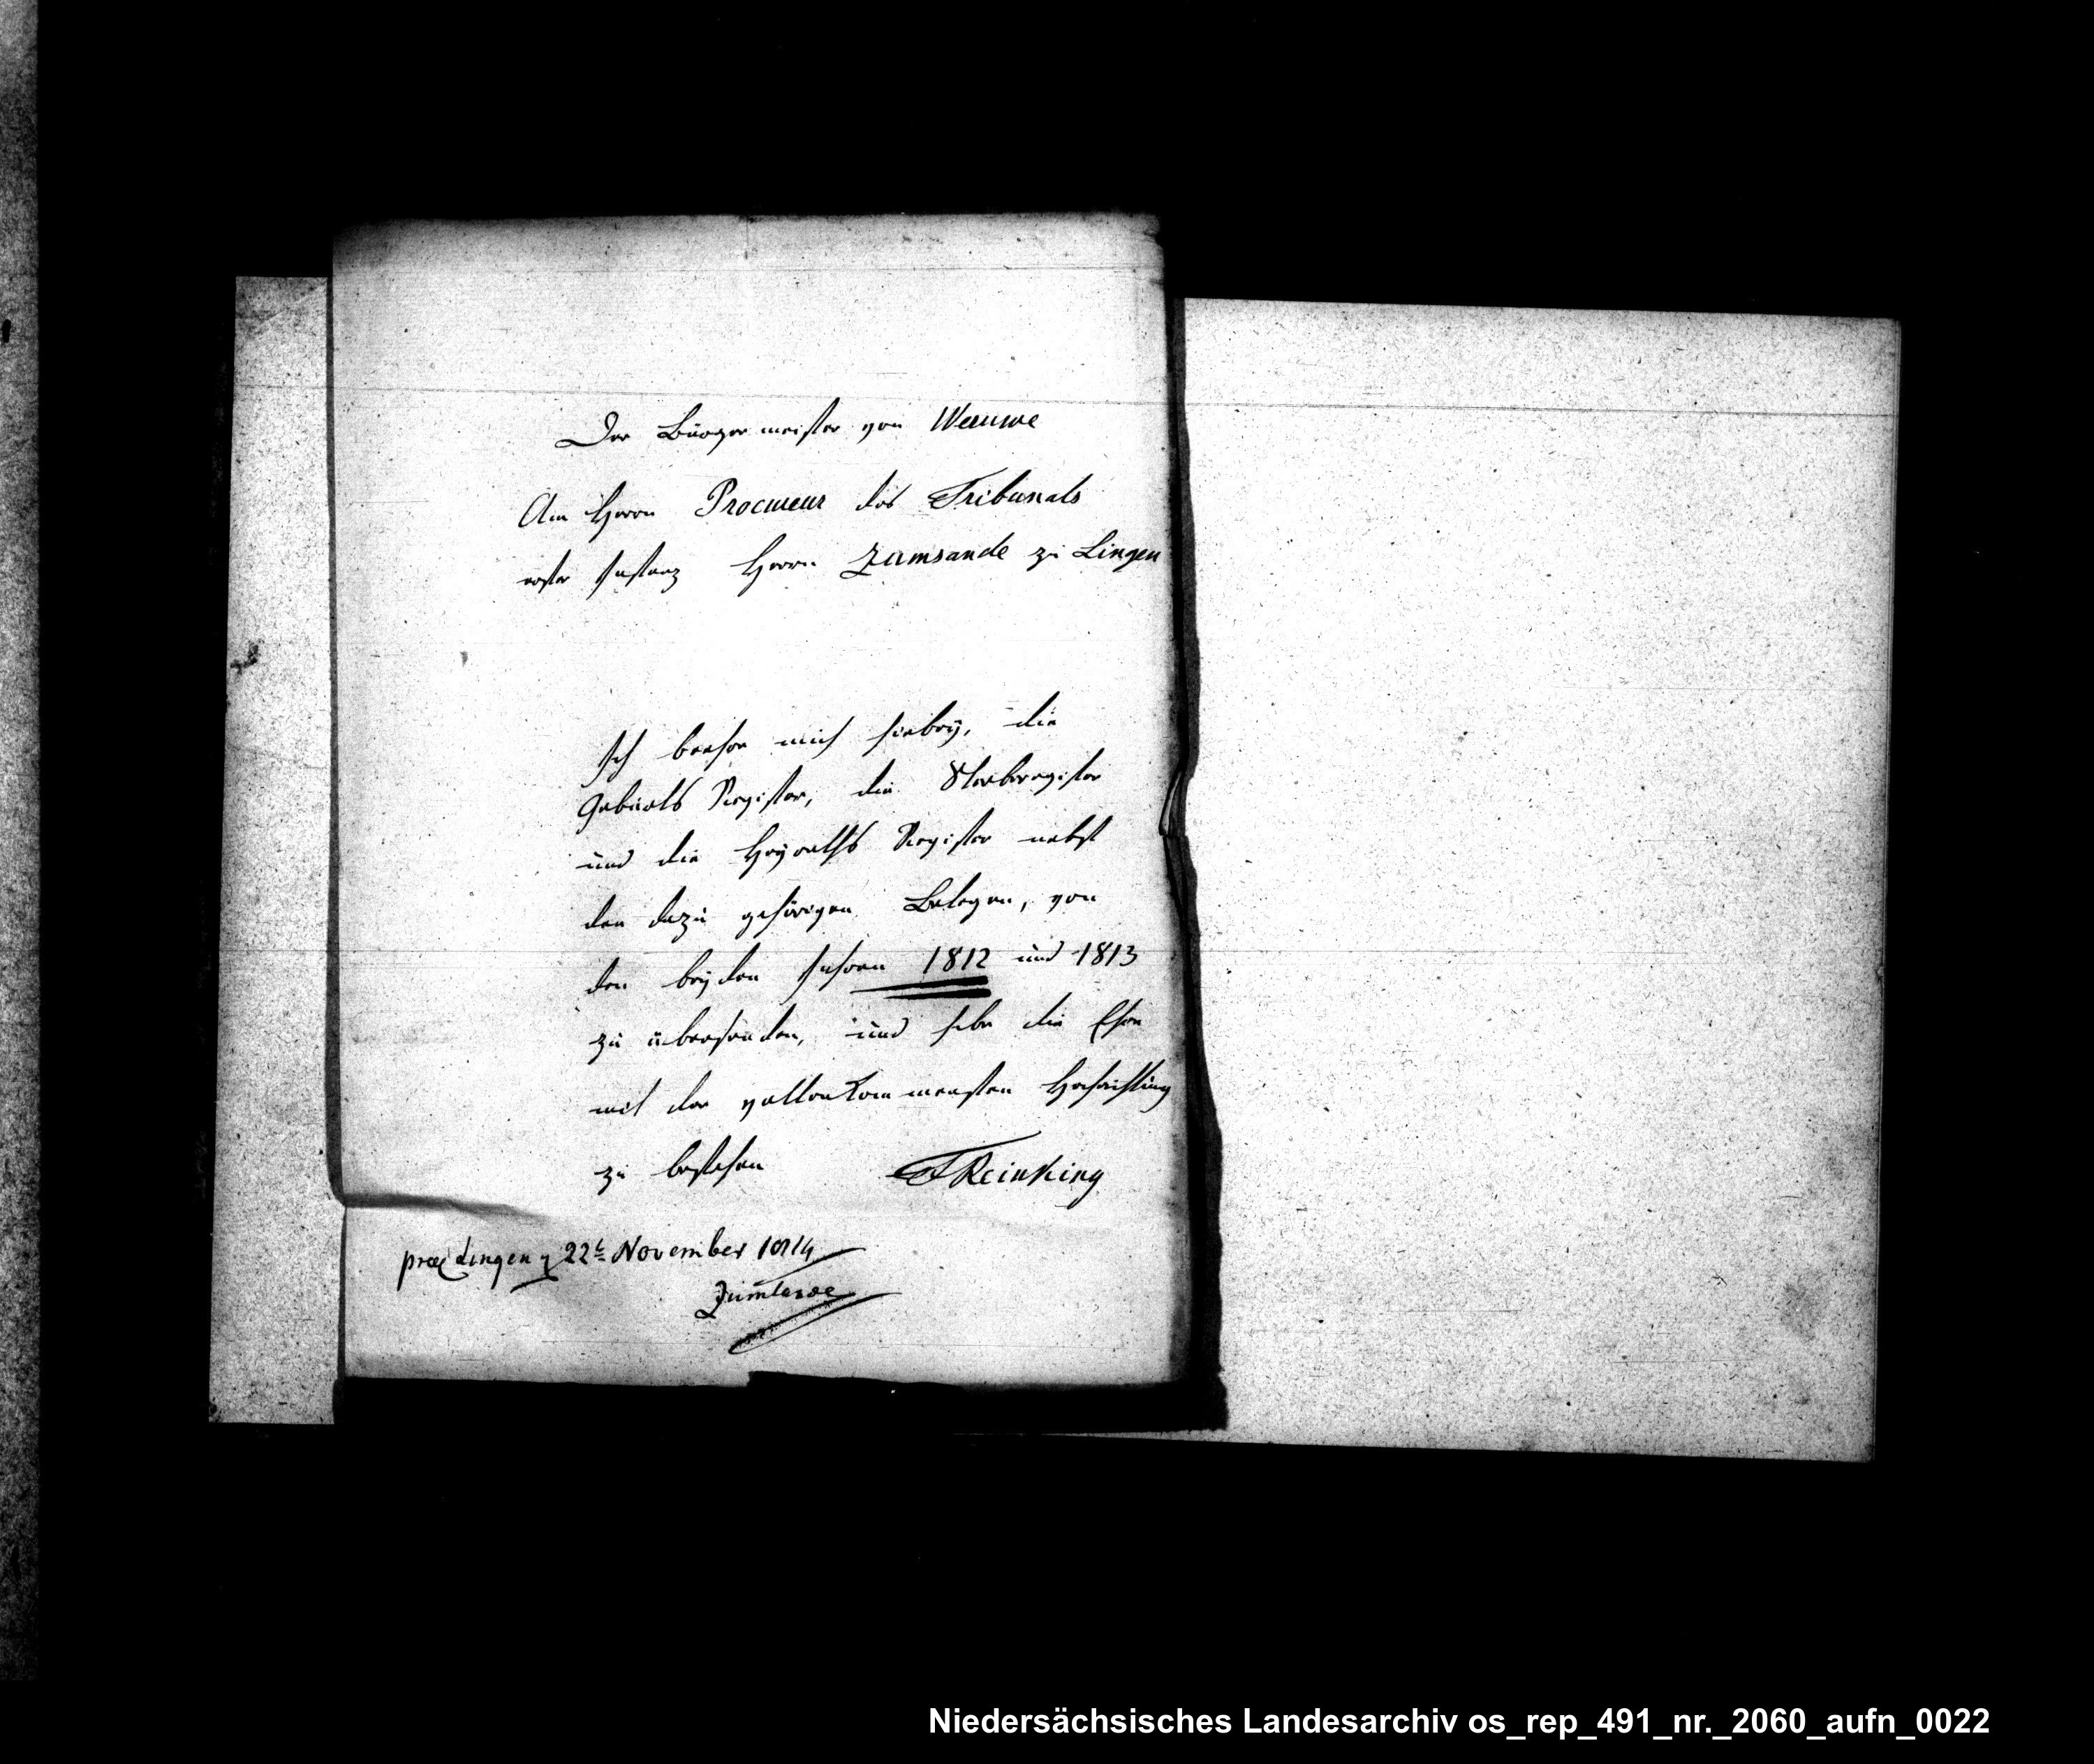 Der Bürgermeister von Weuwe
Am Herrn Procureur des Tribunals
erster Instanz Herrn Zumsande zu Lingen
Ich beehre mich hiebey, die
Geburts Register, die Sterberegister
und die Heyraths Register nebst
den dazu gehörigen Belegen, von
den beyden Jahren 1812 und 1813
zu übersenden, und habe die Ehre
mit der vollenkommensten Hochachtung
zu bestehen FReinking
præs Lingen 22t November 1814
Zumsande
Niedersächsisches Landesarchiv os_rep_491_nr._2060_aufn_0022